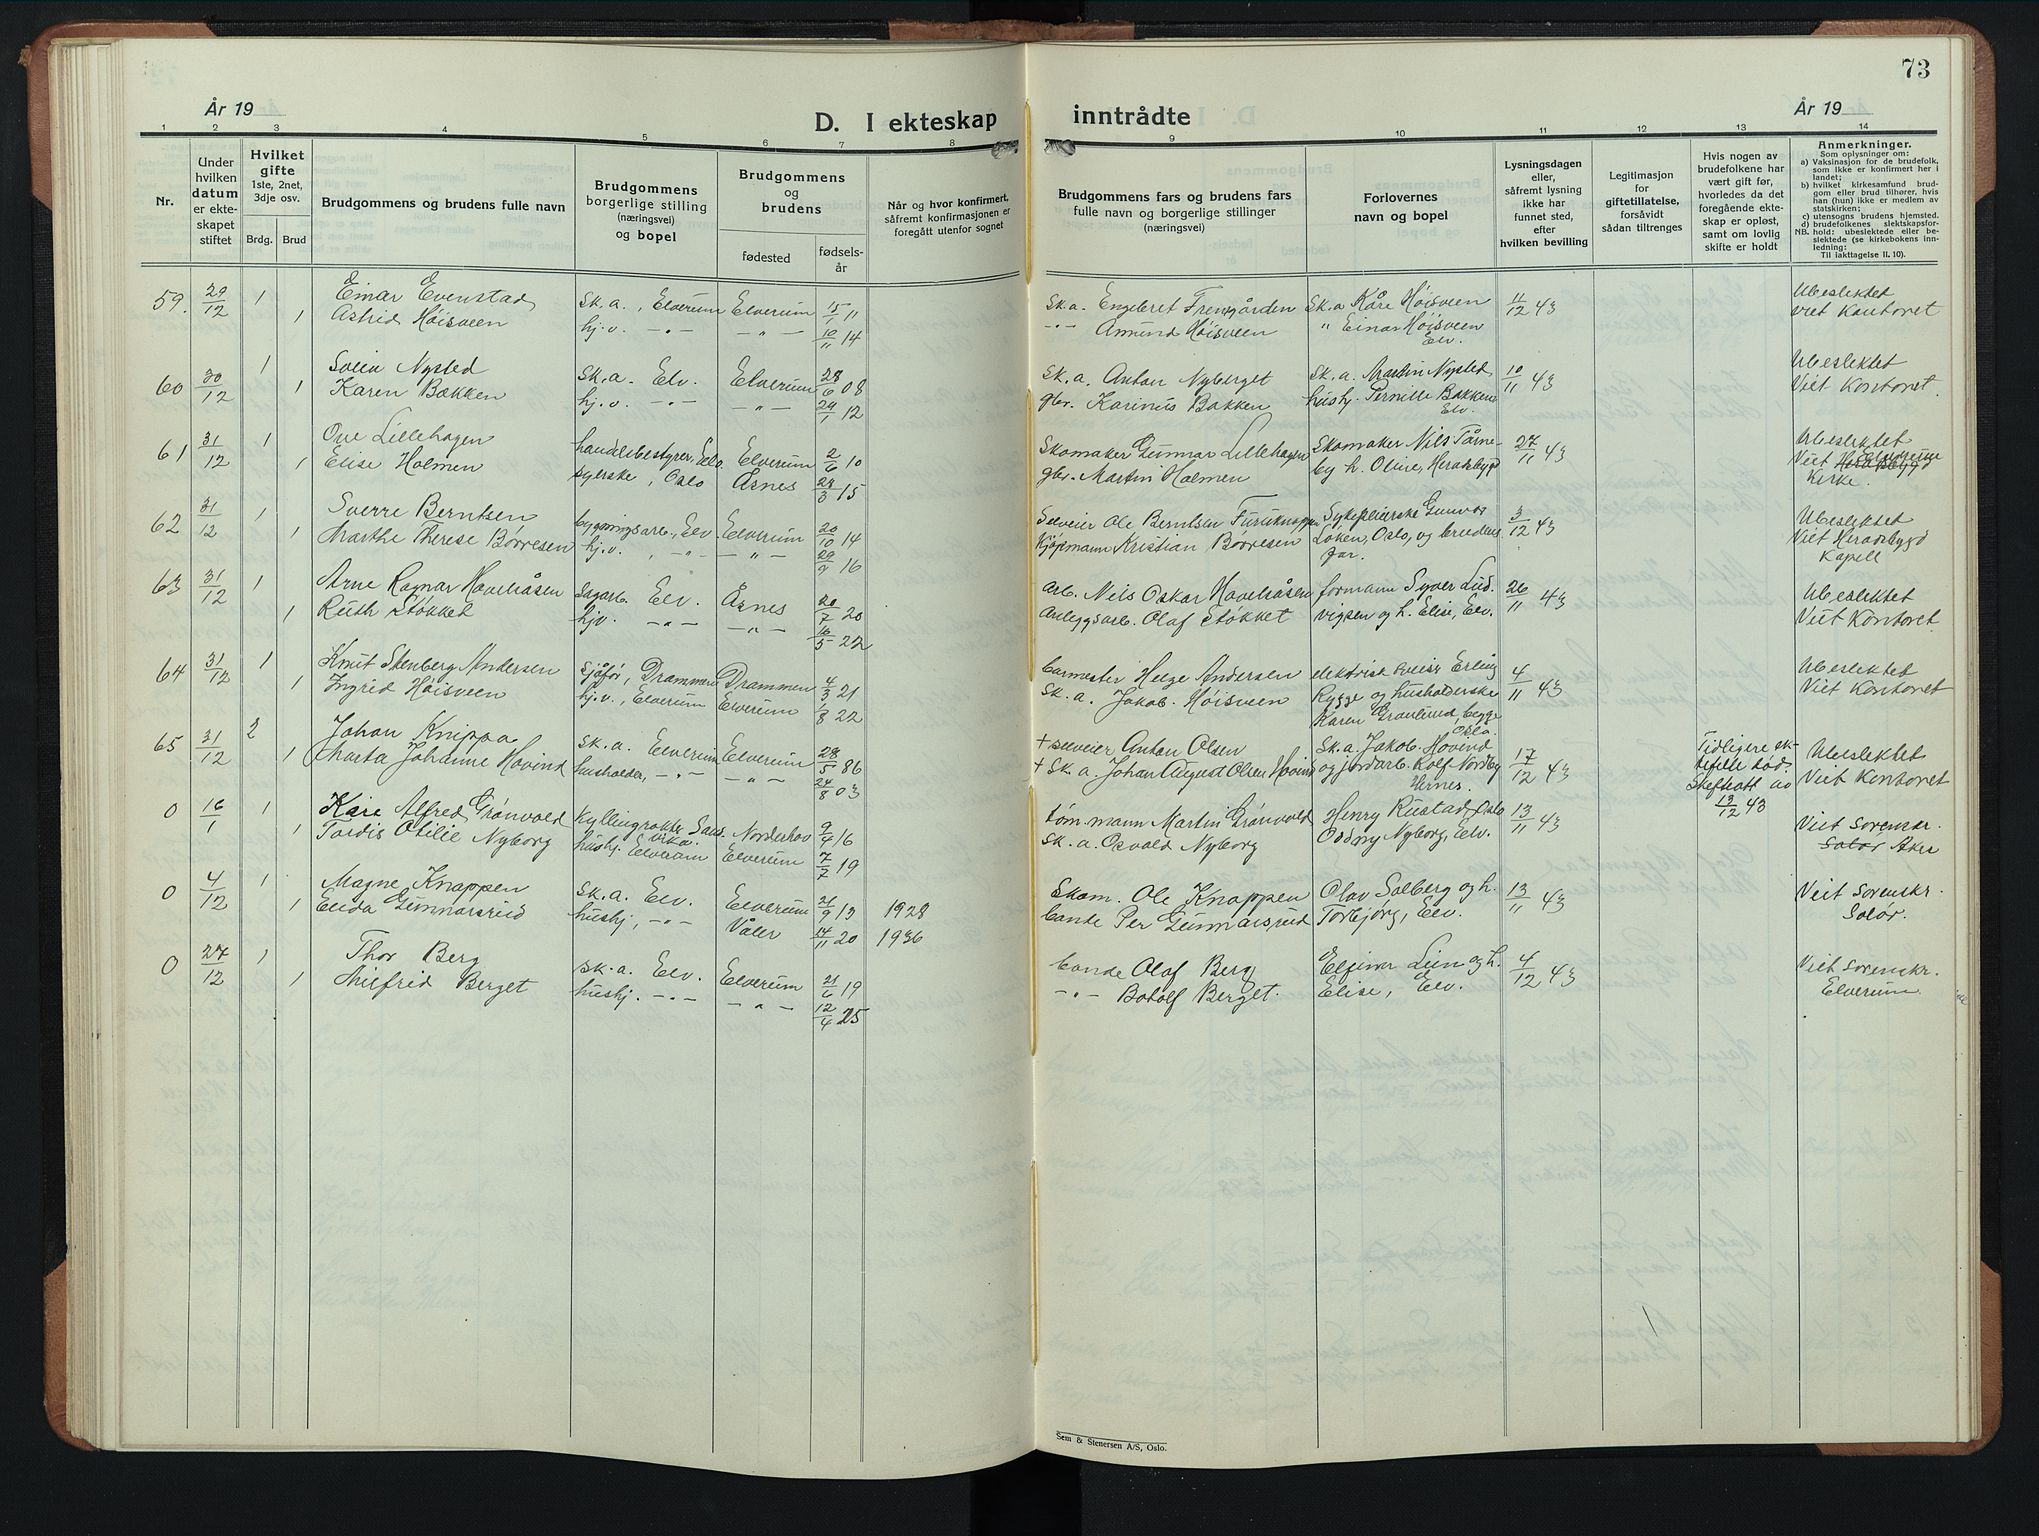 73
År 19
D. I ekteskap inntrådte
År 19
1 2 3 4 5 6 7 8 9 10 11 12 13 14
Nr.
Under hvilken datum er ekteskapet stiftet
Hvilket gifte 1ste, 2net, 3dje osv.
Brdg. Brud
Brudgommens og brudens fulle navn
Brudgommens borgerlige stilling (næringsvei) og bopel
Brudgommens og brudens
fødested
fødselsår
Når og hvor konfirmert, såfremt konfirmasjonen er foregått utenfor sognet
Brudgommens fars og brudens fars fulle navn og borgerlige stillinger (næringsvei)
Forlovernes navn og bopel
Lysningsdagen eller, såfremt lysning ikke har funnet sted, efter hvilken bevilling
Legitimasjon for giftetillatelse, forsåvidt sådan tiltrenges
Hvis nogen av brudefolkene har vært gift før, hvorledes da det foregående ekteskap er opløst, samt om lovlig skifte er holdt
Anmerkninger.
Som oplysninger om:
a) Vaksinasjon for de brudefolk, som ikke er konfirmert her i landet;
b) hvilket kirkesamfund brudgom eller brud tilhører, hvis han (hun) ikke er medlem av statskirken;
c) utensogns brudens hjemsted.
d) brudefolkenes slektskapsforhold: ubeslektede eller beslektede (se kirkebokens innledning:
NB.
Til iakttagelse II. 10).
59. 29/12 1 Einar Evenstad sk.a., Elverum Elverum 15/1 11 sk.a. Engebret Fremgården Sk.a Kåre Høisveen 11/12 43 Ubeslektet
1 Astrid Høisveen hj.v. -"- -"- 10/11 14 -"- Amund Høisveen " Einar Høisveen Elv. viet Kontoret
60 30/12 1 Svein Nysted sk.a. Elv. Elverum 28/6 08 sk.a. Anton Nyberget sk.a. Martin Nysted, 10/11 43 Ubeslektet
1 Karen Bakken hj.v. -"- -"- 29/1 12 gbr. Karinus Bakken hushj. Pernille Bakken Elv. Viet Kontoret.
61 31/12 1 Ove Lillehagen handelsbestyrer, Elv. Elverum 2/6 10 Skomaker Gunnar Lillehagen Skomaker Nils Tårne- 27/11 43 Ubeslektet
1 Elise Holmen syerske, Oslo Åsnes 28/3 15 gbr. Martin Holmen by h. Oline, Heradsbygd Viet Heradsbygd Elverum kirke.
62 31/12 1 Sverre Berntsen bygningsarb., Elv Elverum 20/10 14 Selveier Ole Berntsen Furuknappen Sykepleierske Gunvor 3/12 43 Ubeslektet
1 Marthe Therese Børresen hj.v. , -"- -"- 29/9 16 Kjøpmann Kristian Børresen Løken, Oslo, og brudens far. Viet Heradsbygd Kapell
63 31/12 1 Arne Ragnar Havelråsen Sagarb. Elv. Åsnes 20/7 20 arb. Nils Oskar Havelråsen formann Syver Lud- 26/11 43 Ubeslektet
1 Ruth Støkket hjv. -"- -"- 16/5 22 Anleggsarb. Olaf Støkket vigsen og h. Elise, Elv. Viet Kontoret.
64 31/12 1 Knut Stenberg Andersen Sjåfør, Drammen Drammen 4/3 21 Helge Andersen elektrisk Erling 4/11 43 Ubeslektet
1 Ingrid Høisveen hj.v., Elverum Elverum 1/8 22 sk.a. Jakob Høisveen Rygge og husholderske Viet Kontoret
Karen Grønlund, begge Oslo.
65 31/12 2 Johan Knippa sk.a. Elverum Elverum 28/5 86 + selveier Anton Olsen Sk.a. Jakob Hovind 17/12 43 Tidligere ek- Ubeslektet
1 Marta Johanne Hovind husholder, -"- -"- 24/8 03 + sk.a. Johan August Olsen Hovind og jordarb. Rolf Nordby Hernes. tefelle død. Viet Kontoret
Skifteatt av 13/12 43
0 16/1 1 Kåre Alfred Grønvold Norderhov 9/4 16 tøm.mann Martin Grønvold Henry Rustad, Oslo 13/11 43 Viet Sorenskr.
1 Tordis Otilie Nyborg hushj. Elverum Elverum 7/7 19 sk.a. Osvald Nyborg Oddny Nyborg, Elv. Solør Aker
0 4/12 1 Magne Knappen sk.a. Elv. Elverum 21/9 13 1928 Skom. Ole Knappen Olav Solberg og h. 13/11 43 Viet Sorenskr.
1 Elida Gunnarsrud hushj, -"- Våler 14/11 20 1936 bonde Per Gunnarsrud Torbjørg, Elv. Solør.
0 27/12 1 Thor Berg sk.a. Elv. Elverum 21/6 19 bonde Olaf Berg Lun og h. 4/12 43 Viet Sorenskr.
1 Milfrid Berget hushj. -"- -"- 12/4 25 -"- Botolf Berget. Elise, Elv. Elverum.
Sem & Stenersen A/S, Oslo.